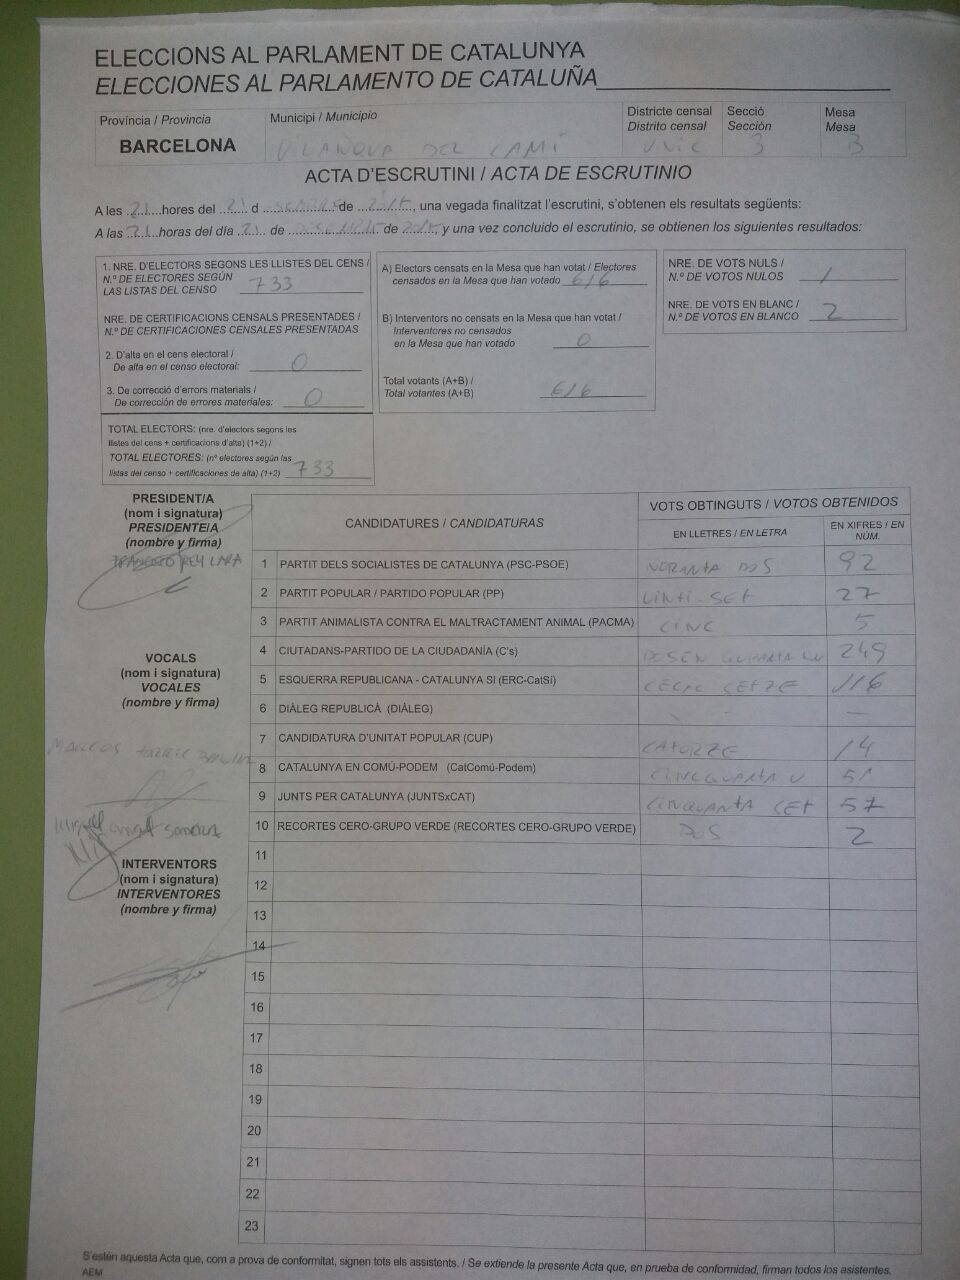 ELECCIONS AL PARLAMENT DE CATALUNYA
ELECCIONES AL PARLAMENTO DE CATALUÑA
Província / Provincia
BARCELONA
Municipi / Municipio
VILANOVA DEL CAMÍ
Districte censal
Distrito censal
UNIC
Secció
Sección
3
Mesa
Mesa
B
ACTA D'ESCRUTINI / ACTA DE ESCRUTINIO
A les 21 hores del 21 d de, una vegada finalitzat l'escrutini, s'obtenen els resultats següents:
A las 21 horas del día 21 de de, y una vez concluido el escrutinio, se obtienen los siguientes resultados:
1. NRE. D'ELECTORS SEGONS LES LLISTES DEL CENS /
N.º DE ELECTORES SEGÚN
LAS LISTAS DEL CENSO 733
NRE. DE CERTIFICACIONS CENSALS PRESENTADES /
N.º DE CERTIFICACIONES CENSALES PRESENTADAS
2. D'alta en el cens electoral /
De alta en el censo electoral: 0
3. De correcció d'errors materials /
De corrección de errores materiales: 0
TOTAL ELECTORS: (nre. d'electors segons les
llistes del cens + certificacions d'alta) (1+2) /
TOTAL ELECTORES: (nº electores según las
listas del censo + certificaciones de alta) (1+2) 733
A) Electors censats en la Mesa que han votat / Electores
censados en la Mesa que han votado 616
B) Interventors no censats en la Mesa que han votat /
Interventores no censados
en la Mesa que han votado 0
Total votants (A+B) /
Total votantes (A+B) 616
NRE. DE VOTS NULS /
N.º DE VOTOS NULOS 1
NRE. DE VOTS EN BLANC /
N.º DE VOTOS EN BLANCO 2
PRESIDENT/A
(nom i signatura)
PRESIDENTE/A
(nombre y firma)
FRANCISCO REY LARA
VOCALS
(nom i signatura)
VOCALES
(nombre y firma)
MARCOS
Miguel angel
INTERVENTORS
(nom i signatura)
INTERVENTORES
(nombre y firma)
CANDIDATURES / CANDIDATURAS
VOTS OBTINGUTS / VOTOS OBTENIDOS
EN LLETRES / EN LETRA
EN XIFRES / EN NÚM.
1 PARTIT DELS SOCIALISTES DE CATALUNYA (PSC-PSOE) NORANTA DOS 92
2 PARTIT POPULAR / PARTIDO POPULAR (PP) VINTI-SET 27
3 PARTIT ANIMALISTA CONTRA EL MALTRACTAMENT ANIMAL (PACMA) CINC 5
4 CIUTADANS-PARTIDO DE LA CIUDADANÍA (C's) 249
5 ESQUERRA REPUBLICANA - CATALUNYA SI (ERC-CatSí) 116
6 DIÀLEG REPUBLICÀ (DIÀLEG) -
7 CANDIDATURA D'UNITAT POPULAR (CUP) CATORZE 14
8 CATALUNYA EN COMÚ-PODEM (CatComú-Podem) CINCQUANTA U 51
9 JUNTS PER CATALUNYA (JUNTSxCAT) CINQUANTA SET 57
10 RECORTES CERO-GRUPO VERDE (RECORTES CERO-GRUPO VERDE) DOS 2
11
12
13
14
15
16
17
18
19
20
21
22
23
S'estén aquesta Acta que, com a prova de conformitat, signen tots els assistents. / Se extiende la presente Acta que, en prueba de conformidad, firman todos los asistentes.
AEM